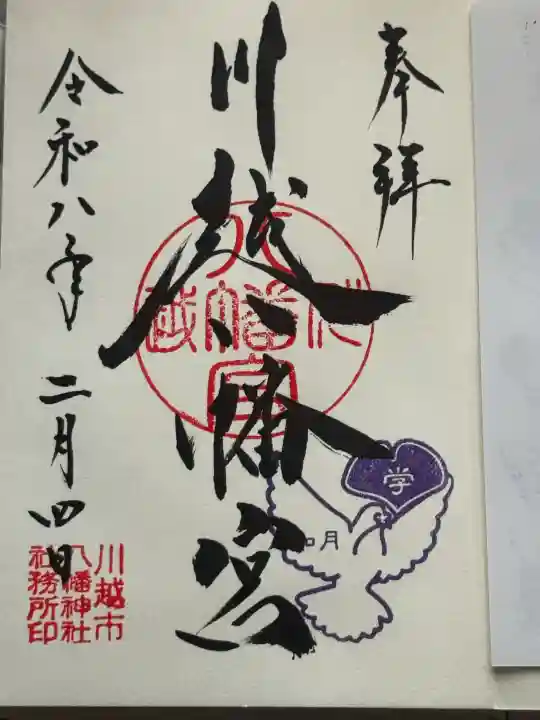 奉拝
川越八幡宮
川越
八幡宮
学
如月
令和八年 二月四日
川越市
八幡神社
社務所印